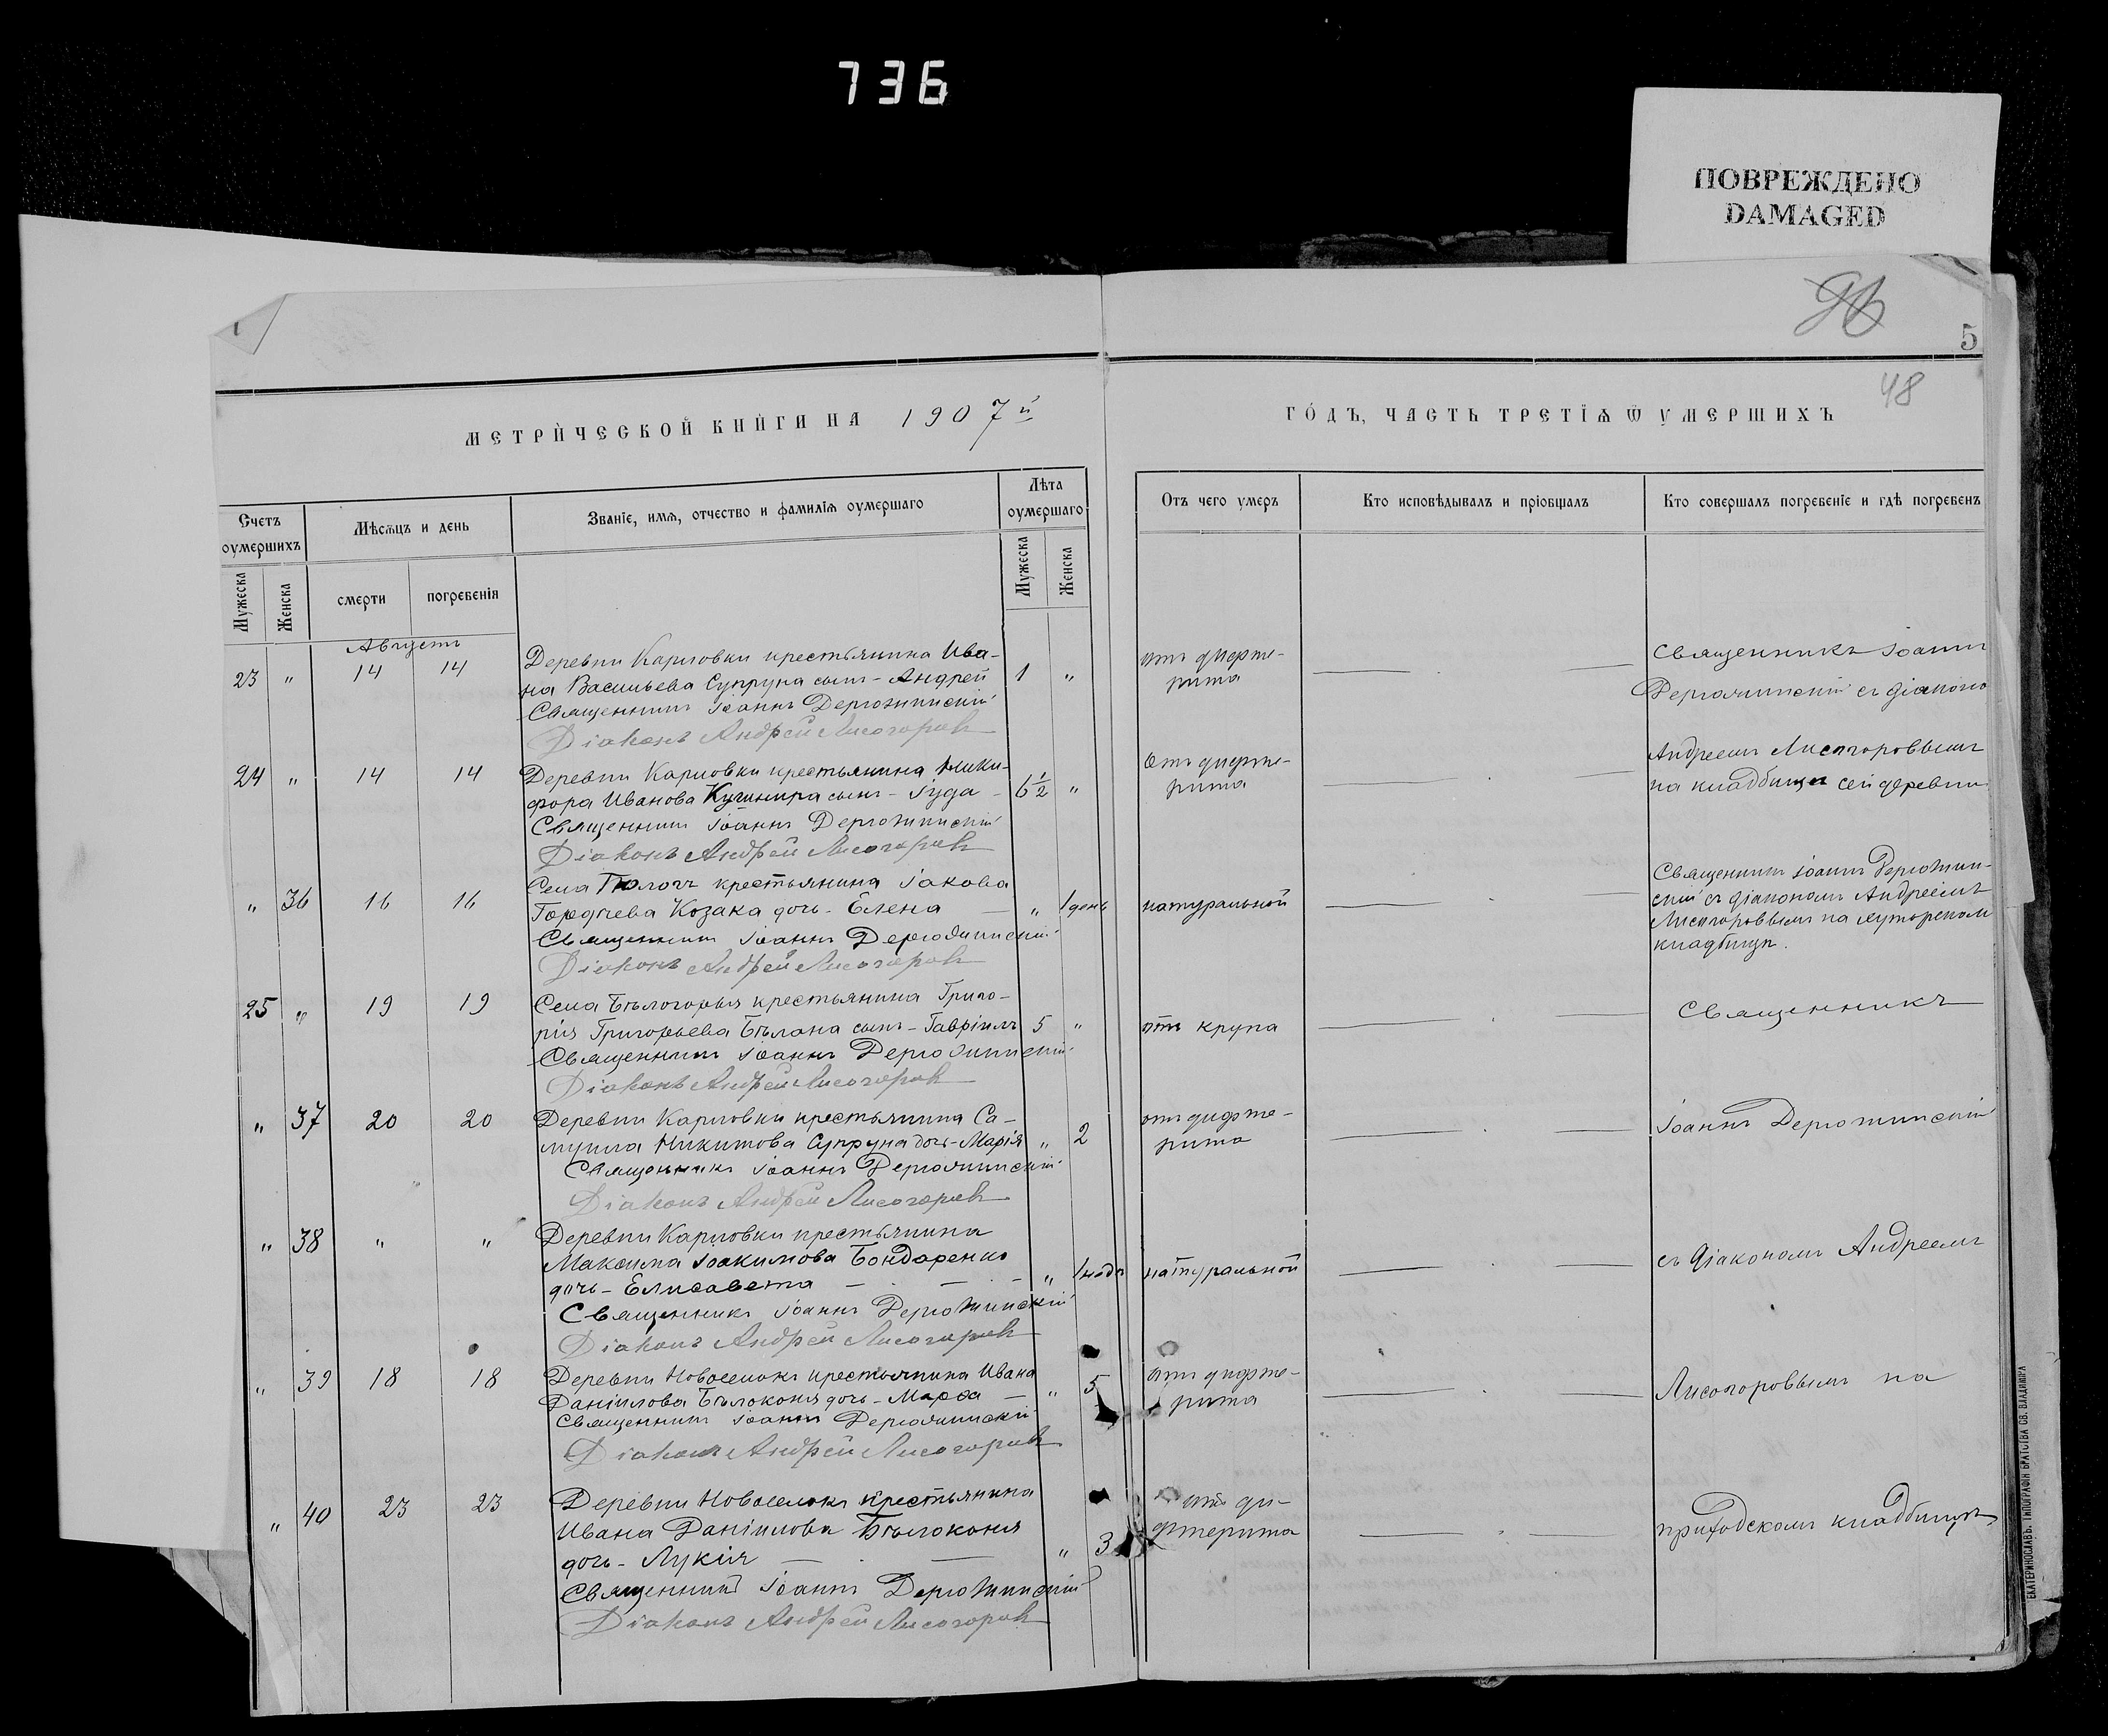 736
ПОВРЕЖДЕНО
DAMAGED
96
5
48
МЕТРИ́ЧЕСКОЙ КНИ́ГИ НА 1907й
ГО́ДЪ, ЧАСТЬ ТРЕТЇѦ Ѿ УМЕРШИХЪ
Счетъ оумершихъ
Мѣсѧцъ и день
Званіе, имѧ, отчество и фамилїѧ оумершаго
Лѣта оумершаго
Отъ чего умеръ
Кто исповѣдывалъ и пріобщалъ
Кто совершалъ погребеніе и гдѣ погребенъ
Мужеска
Женска
смерти
погребенія
Мужеска
Женска
Августъ
23 " 14 14 Деревни Карловки крестьянина Ива-
на Васильева Супруна сынъ - Андрей 1 " отъ дифте-
рита
Священникъ Іоаннъ
Священникъ Іоаннъ Держинскій
Діаконъ Андрей Лисогоровъ
съ діакономъ
24 " 14 14 Деревни Карловки крестьянина Ники-
фора Иванова Кушнира сынъ - Іуда - 6½ " Отъ дифте-
рита
Андреемъ Лисогоровымъ
на кладбищѣ сей деревни
Священникъ Іоаннъ
Діаконъ Андрей Лисогоровъ
" 36 16 16 Села крестьянина Іакова
Гордѣева Козака дочь - Елена " 1 день натуральной
Священникъ Іоаннъ
Діаконъ Андрей Лисогоровъ
Священникъ Іоаннъ
съ діакономъ Андреемъ
Лисогоровымъ на хуторскомъ
кладбищѣ.
25 " 19 19 Села Бѣлогорья крестьянина Григо-
рія Григорьева Бѣлана сынъ - Гавріилъ 5 " отъ крупа
Священникъ
Священникъ Іоаннъ
Діаконъ Андрей Лисогоровъ
" 37 20 20 Деревни Карловки крестьянина Са-
муила Никитова Супруна дочь - Марія " 2 отъ дифте-
рита
Іоаннъ
Священникъ Іоаннъ
Діаконъ Андрей Лисогоровъ
" 38 " " Деревни Карловки крестьянина
Максима Іоакимова Бондаренко
дочь - Елисавета " 1 натуральной
съ діакономъ Андреемъ
Священникъ Іоаннъ
Діаконъ Андрей Лисогоровъ
" 39 18 18 Деревни Новоселокъ крестьянина Ивана
Даніилова Бѣлоконя дочь - Марфа " 5 отъ дифте-
рита
Лисогоровымъ на
Священникъ Іоаннъ
Діаконъ Андрей Лисогоровъ
" 40 23 23 Деревни Новоселокъ крестьянина
Ивана Даніилова Бѣлоконя
дочь - Лукія " 3 отъ ди-
фтерита
приходскомъ кладбищѣ
Священникъ Іоаннъ
Діаконъ Андрей Лисогоровъ
ЕКАТЕРИНОСЛАВЪ. ТИПОГРАФІЯ БРАТСТВА СВ. ВЛАДИМІРА